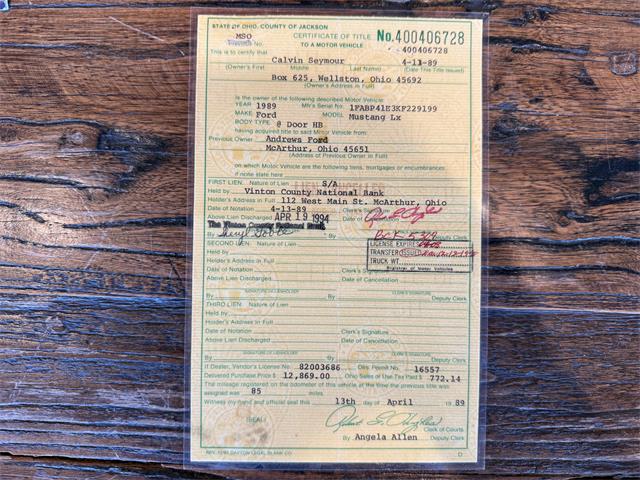 STATE OF OHIO, COUNTY OF JACKSON
MSO CERTIFICATE OF TITLE No. 400406728
No. TO A MOTOR VEHICLE 400406728
This is to certify that
Calvin Seymour 4-11-89
(Owner's First Middle Last Name) (Date This Title Issued)
Box 625, Wellston, Ohio 45692
(Owner's Address in Full)
is the owner of the following described Motor Vehicle:
YEAR 1989 Mfr's Serial No. 1FABP41E3KF229199
MAKE Ford MODEL Mustang Lx
BODY TYPE @ Door HB
having acquired title to said Motor Vehicle from:
Previous Owner Andrews Ford
McArthur, Ohio 45651
(Address of Previous Owner in Full)
on which Motor Vehicle are the following liens, mortgages or encumbrances
if none state here
FIRST LIEN: Nature of Lien S/A
LIEN CANCELLED
Held by Vinton County National Bank
Holder's Address in Full 112 West Main St. McArthur, Ohio
Date of Notation 4-13-89 Clerk's Signature
Above Lien Discharged APR 19 1994 Date of
The Vinton County National Bank
By
SECOND LIEN: Nature of Lien
Held by
Holder's Address in Full
Date of Notation Clerk's
Above Lien Discharged Date of Cancellation
LICENSE EXPIRES
TRANSFER ISSUED
TRUCK WT.
Registrar of Motor Vehicles
SIGNATURE OF LIENHOLDER CLERK'S SIGNATURE
By By Deputy Clerk
THIRD LIEN: Nature of Lien
Held by
Holder's Address in Full
Date of Notation Clerk's Signature
Above Lien Discharged Date of Cancellation
SIGNATURE OF LIENHOLDER CLERK'S SIGNATURE
By By Deputy Clerk
If Dealer, Vendor's License No. 82003686 Dlrs. Permit No. 16557
Delivered Purchase Price $ 12,869.00 Ohio Sales or Use Tax Paid $ 772.14
The mileage registered on the odometer of this vehicle at the time the previous title was
assigned was 85 miles.
Witness my hand and official seal this 13th day of April 19 89
(SEAL)
Clerk of Courts
By Angela Allen Deputy Clerk